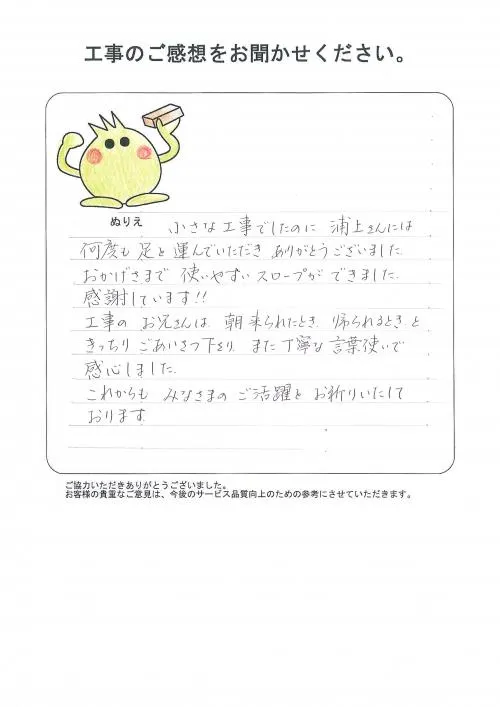 工事のご感想をお聞かせください。
ぬりえ
小さな工事でしたのに 浦上さんには
何度も 足を 運んでいただき ありがとうございました。
おかげさまで 使いやすい スロープが できました。
感謝しています!!
工事の お兄さんは、朝 来られたとき、帰られるとき、と
きっちり ごあいさつ下さり、また 丁寧な 言葉使いで
感心しました。
これからも みなさまの ご活躍を お祈りいたして
おります。
ご協力いただきありがとうございました。
お客様の貴重なご意見は、今後のサービス品質向上のための参考にさせていただきます。